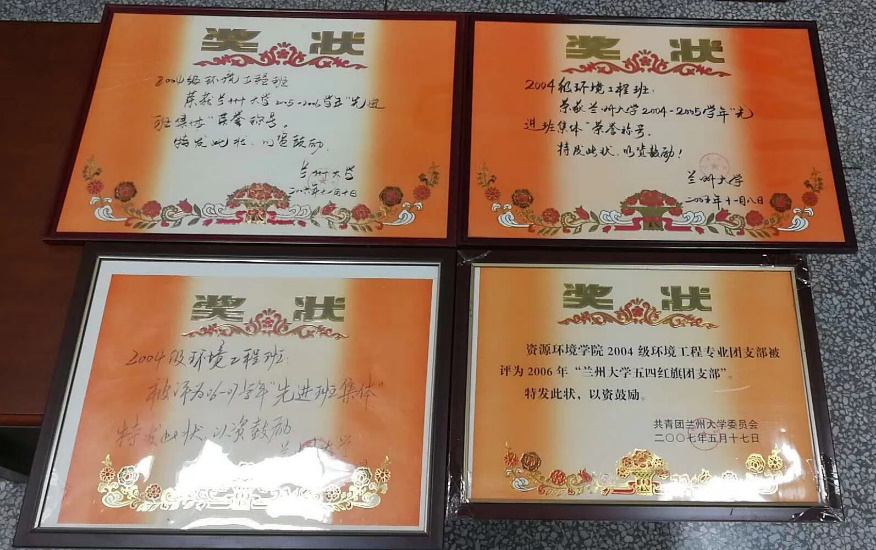 奖 状
2004级环境工程班
荣获兰州大学2005-2006学年"先进
班集体"荣誉称号。
特发此状、以资鼓励
兰州大学
二〇〇六年十一月十日
奖 状
2004级环境工程班:
荣获兰州大学2004-2005学年"先
进班集体"荣誉称号。
特发此状、以资鼓励!
兰州大学
二〇〇五年十一月八日
奖 状
2004级环境工程班:
被评为06-07学年"先进班集体"
特发此状、以资鼓励
大学
奖 状
资源环境学院2004级环境工程专业团支部被
评为2006年"兰州大学五四红旗团支部"。
特发此状,以资鼓励。
共青团兰州大学委员会
二〇〇七年五月十七日